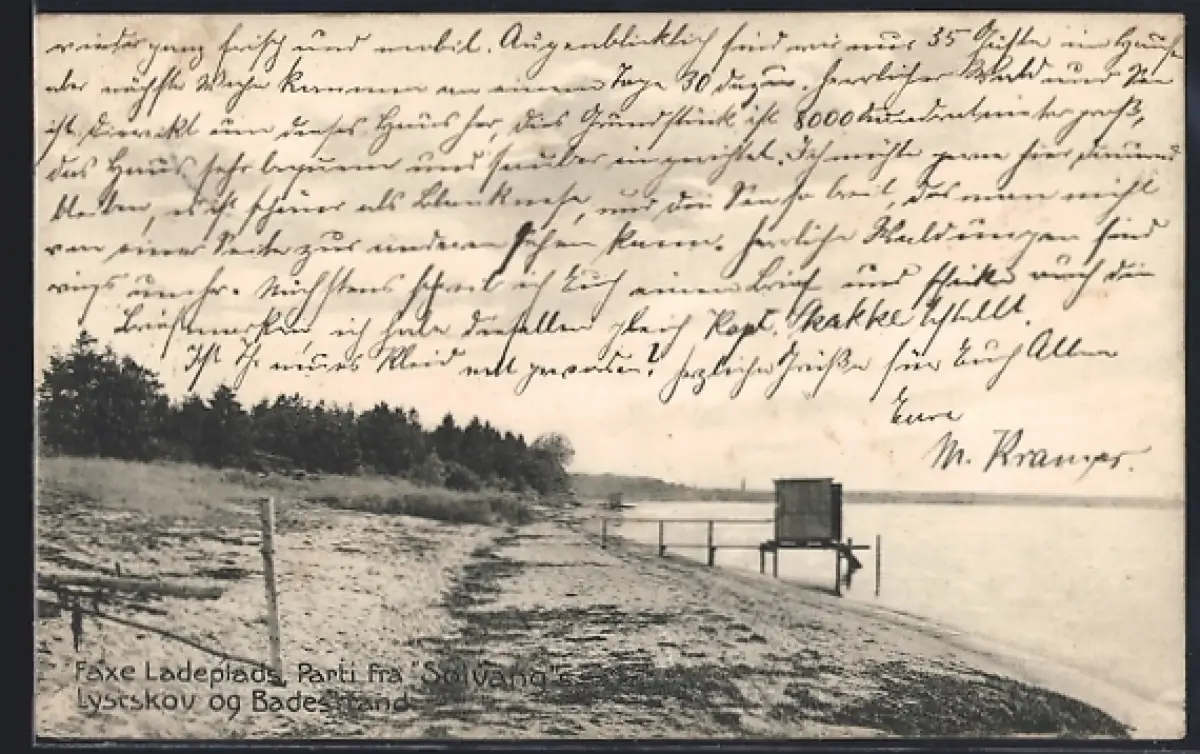 wieder ganz frisch und mobil. Augenblicklich sind wir nur 35 Gäste im Hause
aber nächste Woche kommen an einem Tage 30 dazu. Herrlicher Wald und See
ist direkt um dieses Haus her, das Grundstück ist 8000 Quadratmeter groß,
das Haus sehr bequem und sauber eingerichtet. Ich möchte gerne hier dauernd
bleiben, es ist schöner als Blankenese, und die See so breit, das man nicht
von einer Seite zur anderen sehen kann. Herrliche Waldungen sind
rings umher. Nächstens schreib ich Euch einen Brief und schicke auch die
Briefmarken, ich habe dieselben gleich Kapt. Skakke bestellt.
Ist Ihr neues Kleid nett geworden? Herzliche Grüße für Euch Allen
Eure
M. Kramer.
Faxe Ladeplads, Parti fra "Solvang"s
Lystskov og Badestrand